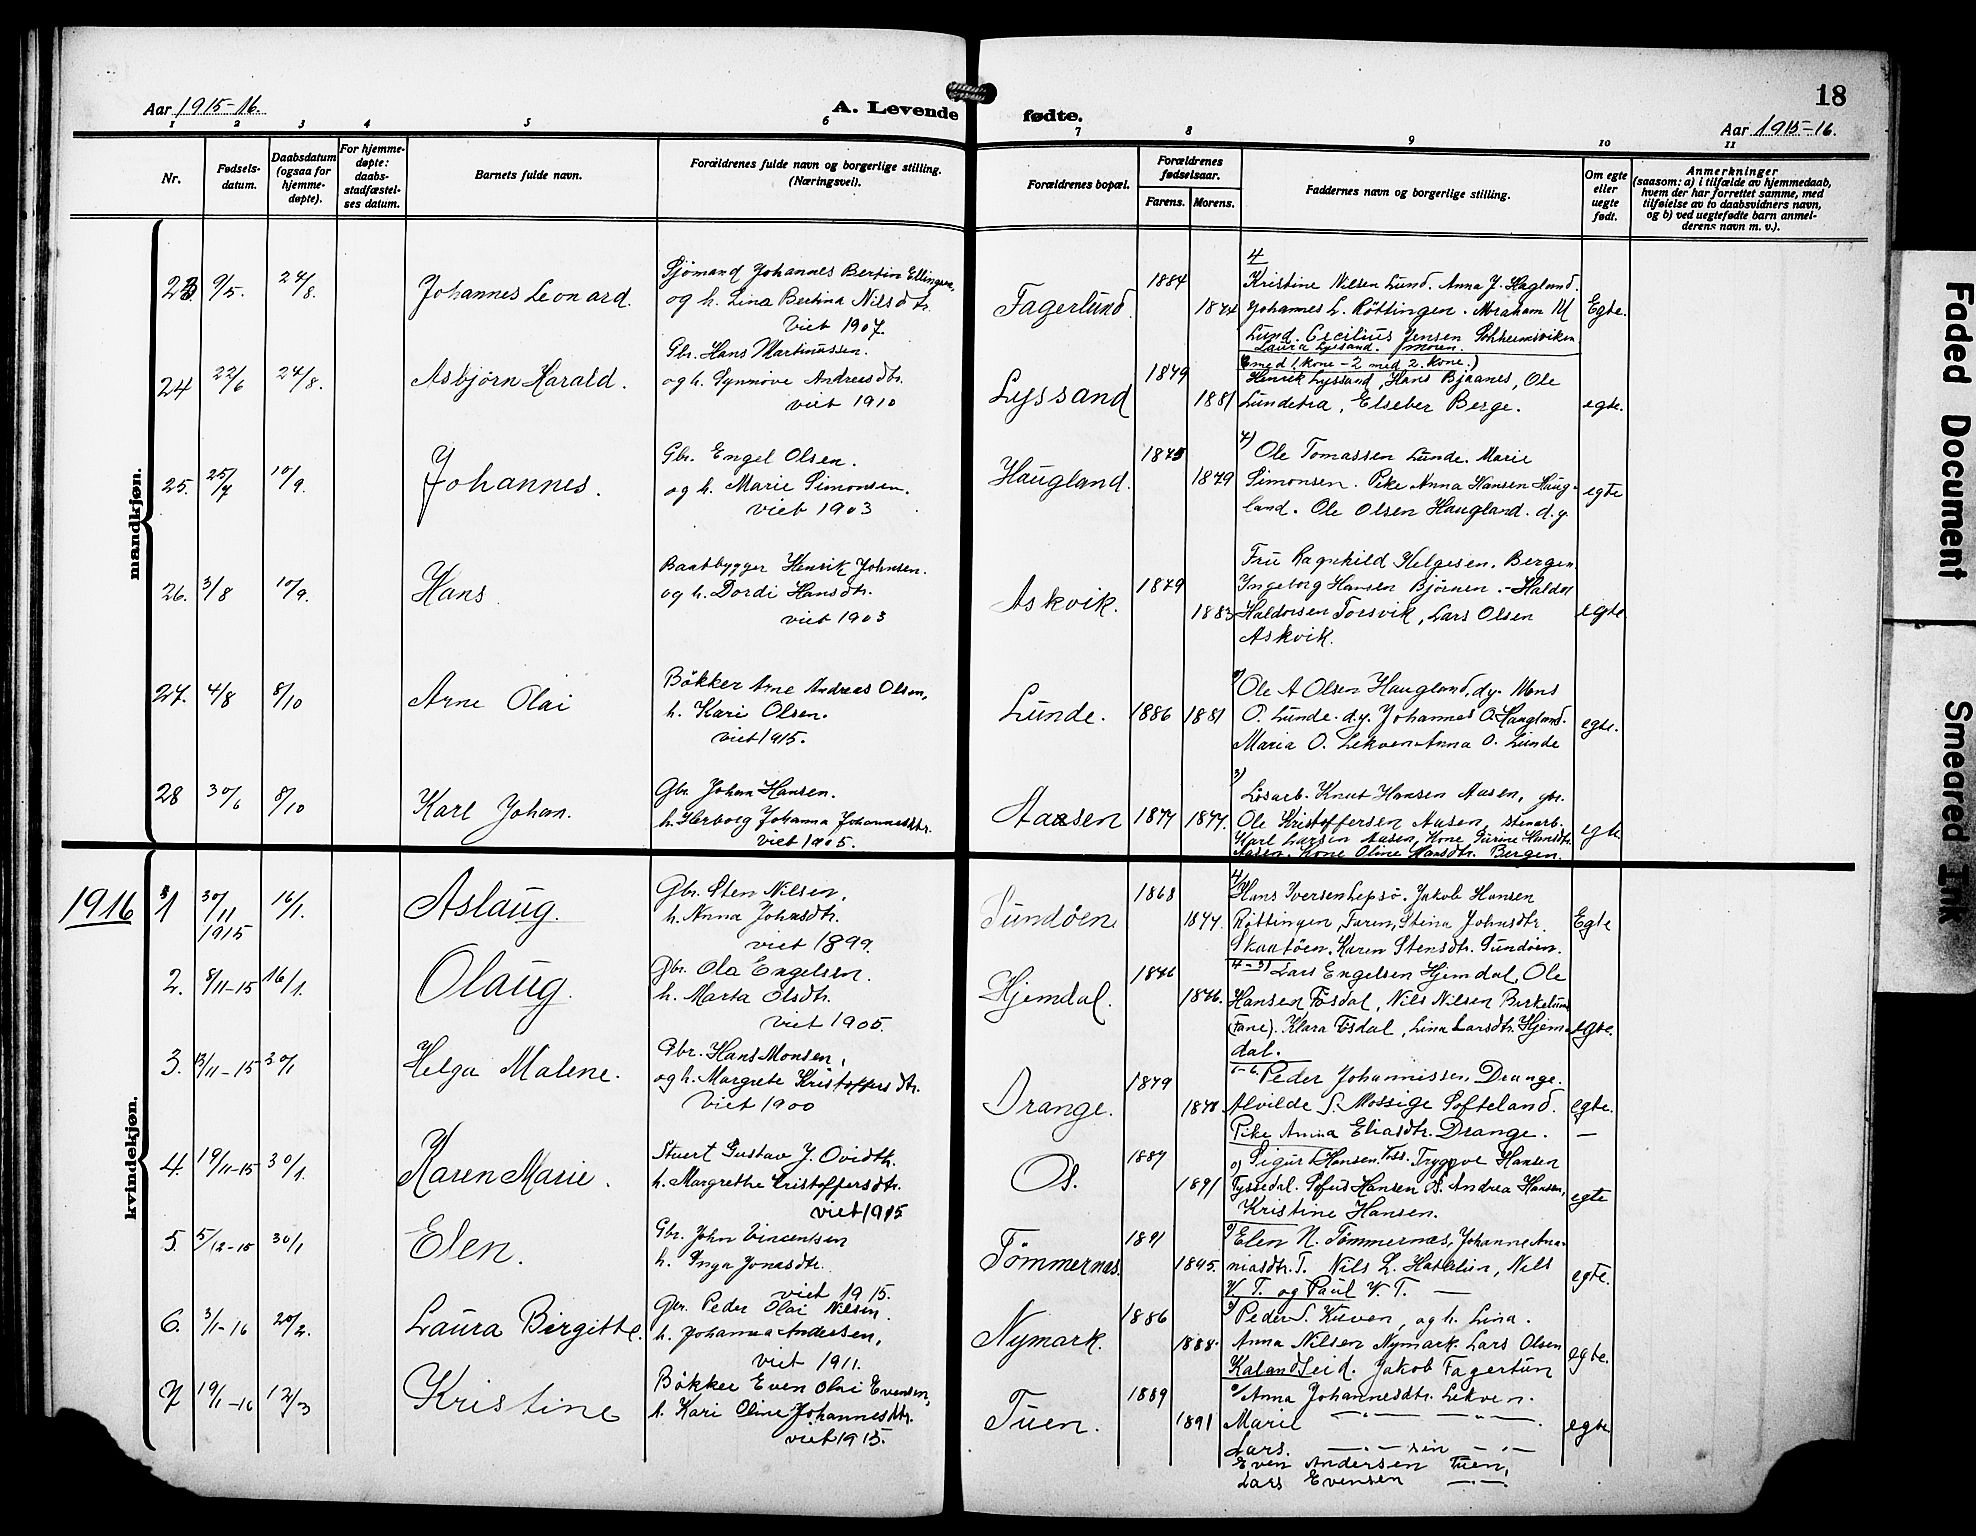 18
Aar 1915-16.
A. Levende fødte.
Aar 1915-16.
1 2 3 4 5 6 7 8 9 10 11
Nr.
Fødsels-
datum.
Daabsdatum
(ogsaa for
hjemme-
døpte).
For hjemme-
døpte:
daabs-
stadfæstel-
ses datum.
Barnets fulde navn.
Forældrenes fulde navn og borgerlige stilling.
(Næringsvei).
Forældrenes bopæl.
Forældrenes
fødselsaar.
Farens. Morens.
Faddernes navn og borgerlige stilling.
Om egte
eller
uegte
født.
Anmerkninger
(saasom: a) i tilfælde av hjemmedaab,
hvem der har forrettet samme, med
tilføielse av to daabsvidners navn,
og b) ved uegtefødte barn anmel-
derens navn m. v.).
mandkjøn.
23 9/5. 24/8. Johannes Leonard.
Sjømand Johannes Bertin Ellingsen,
og h. Lina Bertina Nilsdtr.
Viet 1907.
Fagerlund. 1884 1874
4
Kristine Nilsen Lund. Anna J. Hagland.
Johannes L. Røttingen. Abraham M
Lund. Cecilius Jensen
Laura Lyssand. moren.
Egte.
24 22/6 24/8. Asbjørn Harald.
Gbr. Hans Martinussen.
og h. Synnøve Andreasdtr.
viet 1910
Lyssand 1849 1881
(med 1. kone - 2 med 2. kone.)
Henrik Lyssand, Hans Bjaanes, Ole
Lundetræ, Elseber Berge.
egte.
25. 25/7 10/9. Johannes.
Gbr. Engel Olsen.
og h. Marie Simonsen.
viet 1903
Haugland. 1875 1879
4) Ole Tomassen Lunde. Marie
Simonsen. Pike Anna Hansen Haug-
land. Ole Olsen Haugland. d.y.
egte
26. 3/8 10/9. Hans
Baatbygger Henrik Johnsen.
og h. Dordi Hansdtr.
viet 1903
Askvik. 1879 1883
Fru Ragnhild Helgesen. Bergen
Ingeborg Hansen Bjørnen. - Haldor
Haldorsen Torsvik, Lars Olsen
Askvik.
egte
27. 4/8 8/10 Arne Olai
Bøkker Arne Andreas Olsen,
h. Kari Olsen.
viet 1915.
Lunde. 1886 1881
Ole A Olsen Haugland, d.y. Mons
O. Lunde. d.y. Johannes O. Haugland.
Maria O. Lekven Anna O. Lunde
egte.
28 30/6 8/10 Karl Johan.
Gbr. Johan Hansen.
h. Herborg Johanna Johannesdtr.
viet 1905.
Aasen 1877 1877.
3)
Løsarb. Knut Hansen Aasen, gbr.
Ole Kristoffersen Aasen, stenarb.
Karl Larsen Aasen, Kone Gurine Hansdtr.
Aasen, Kone Oline Hansdtr. Bergen.
egte
1916
kvindekjøn.
1 30/11 1915 16/1. Aslaug.
Gbr. Sten Nilsen,
h. Anna Johnsdtr.
viet 1899.
Sundøen 1868 1877.
4)
Hans Iversen Lepsø. Jakob Hansen
Røttingen, Faren, Stina Johnsdtr.
Skaatøen. Karen Stensdtr. Sundøen.
Egte
2. 8/11-15 16/1. Olaug.
Gbr. Ola Engelsen.
h. Marta Olsdtr.
viet 1905.
Hjemdal. 1876 1876.
4-3) Lars Engelsen Hjemdal, Ole
Hansen Tøsdal, Nils Nilsen Birkelund
(Fane). Klara Tøsdal, Lina Larsdtr. Hjem-
dal.
egte.
3. 13/11-15 30/1 Helga Malene.
Gbr. Hans Monsen,
og h. Margrete Kristoffersdtr.
Viet 1900
Drange. 1879 1878
Peder Johannissen, Drange.
Alvilde S. Mossige Søfteland.
Pike Anna Eliasdtr. Drange. —
egte.
4. 19/11-15 30/1. Karen Marie.
Stuert Gustav J. Ovidth.
h. Margrethe Cristoffersdtr.
viet 1915
Os. 1887 1891
Sigurd Hansen. Tryggve Hansen
Tyssedal. Sofus Hansen Os. Andrea Hansen,
Kristine Hansen.
egte
5. 5/12-15 30/1 Elen.
Gbr. John Vincentsen
h. Inga Jonasdtr.
viet 1915.
Tømmernæs. 1891 1895.
Elen N. Tømmernæs, Johanne Ana-
niasdtr. T. Nils L. Hatvlin, Nils
V. T. og Paul V. T. —
egte.
6. 3/1-16 20/2. Laura Birgitte.
Gbr. Peder Olai Nilsen.
h. Johanna Andersen,
viet 1911.
Nymark. 1886 1888.
Peder S. Kuven, og h. Lina.
Anna Nilsen Nymark. Lars Olsen
Kalandseid. Jakob Fagertun
egte.
7 19/1-16 12/3 Kristine
Bøkker Even Olai Evensen,
h. Kari Oline Johannesdtr.
viet 1915.
Tuen. 1889 1891
Anna Johannesdtr. Lekven.
Marie —"— —"—
Lars. —"— sen —"—
Even Andersen Tuen,
Lars Evensen —"—
egte
Faded Document
Smeared Ink